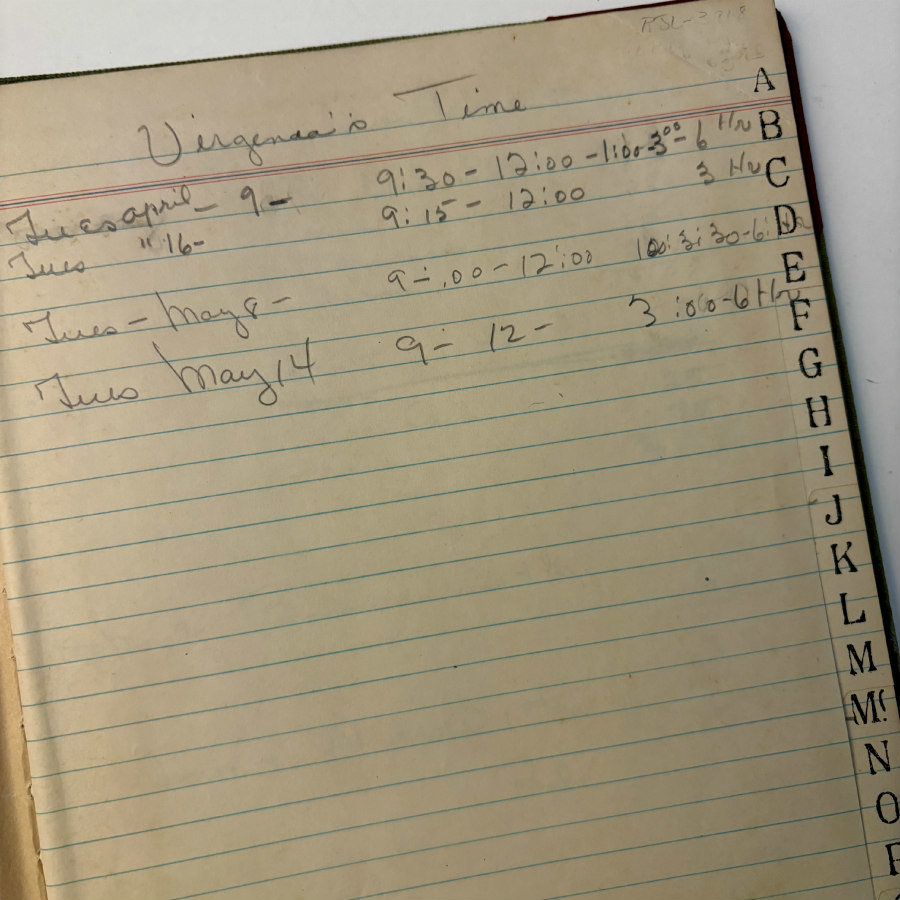 Virgenda's Time
A
Tues april - 9 - 9:30 - 12:00 - 1:00 - 3:00 - 6 Hr
B
Tues " 16 - 9:15 - 12:00 3 Hr
C
Tues - May 8 - 9 - :00 - 12:00 3:30 - 6
D
Tues May 14 9 - 12 - 3:00 - 6 Hr
E
F
G
H
I
J
K
L
M
Mc
N
O
P